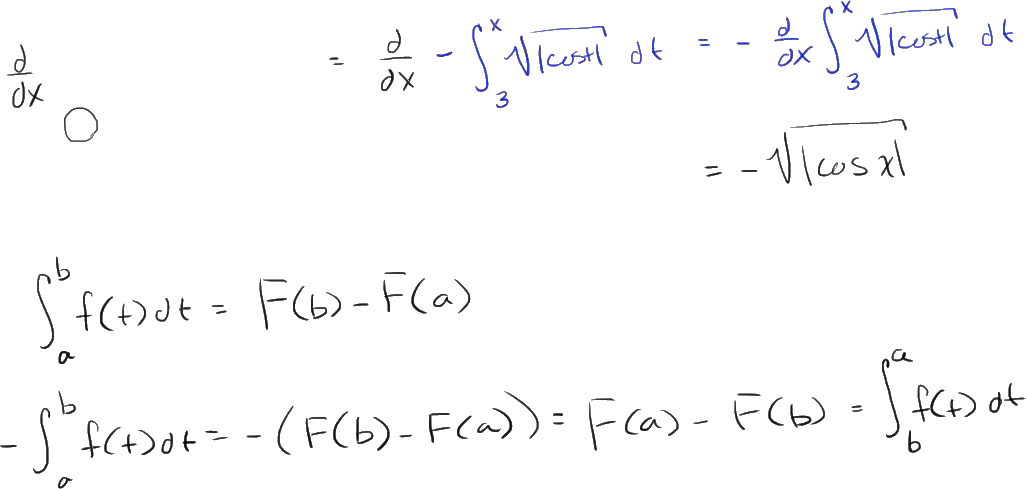 d/dx ○ = d/dx - ∫₃ˣ √|cos t| dt = - d/dx ∫₃ˣ √|cos t| dt
= - √|cos x|
∫ₐᵇ f(t) dt = F(b) - F(a)
- ∫ₐᵇ f(t) dt = - (F(b) - F(a)) = F(a) - F(b) = ∫_b^a f(t) dt